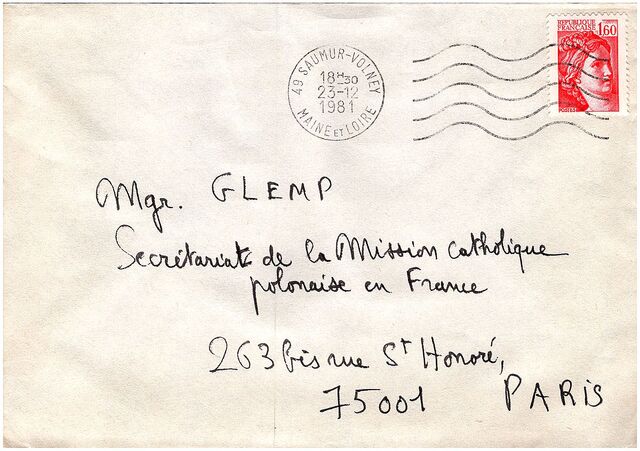 49 SAUMUR-VOLNEY
18H30
23-12
1981
MAINE ET LOIRE
REPUBLIQUE
FRANÇAISE
1,60
POSTES
Mgr. GLEMP
Secrétariat de la Mission catholique
polonaise en France
263 bis rue St Honoré,
75001 PARIS